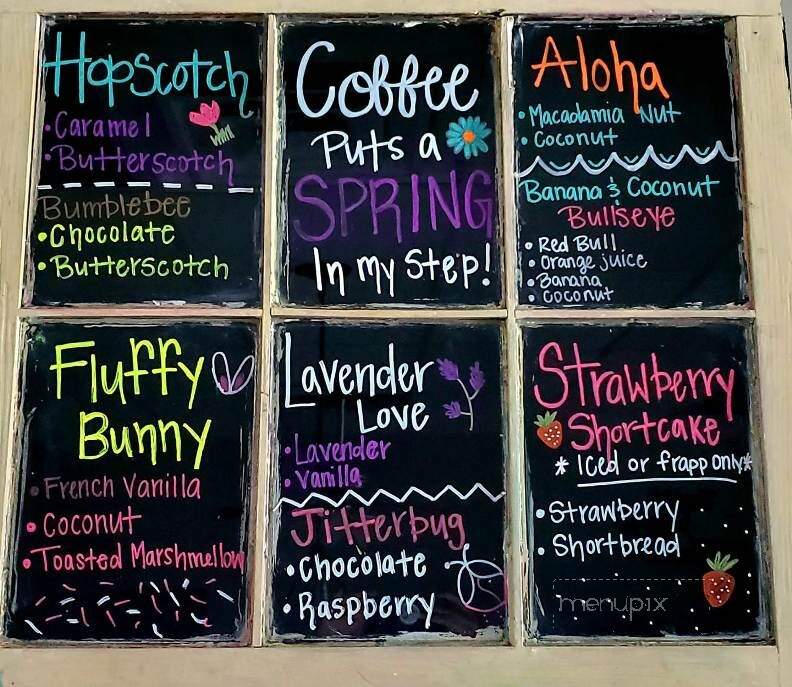 Hopscotch
• Caramel
• Butterscotch
Bumblebee
• Chocolate
• Butterscotch
Coffee
Puts a
SPRING
In my Step!
Aloha
• Macadamia Nut
• Coconut
Banana & Coconut
Bullseye
• Red Bull
• Orange juice
• Banana
• Coconut
Fluffy
Bunny
• French Vanilla
• Coconut
• Toasted Marshmellow
Lavender
Love
• Lavender
• Vanilla
Jitterbug
• Chocolate
• Raspberry
Strawberry
Shortcake
* Iced or frapp only*
• Strawberry
• Shortbread
menupix